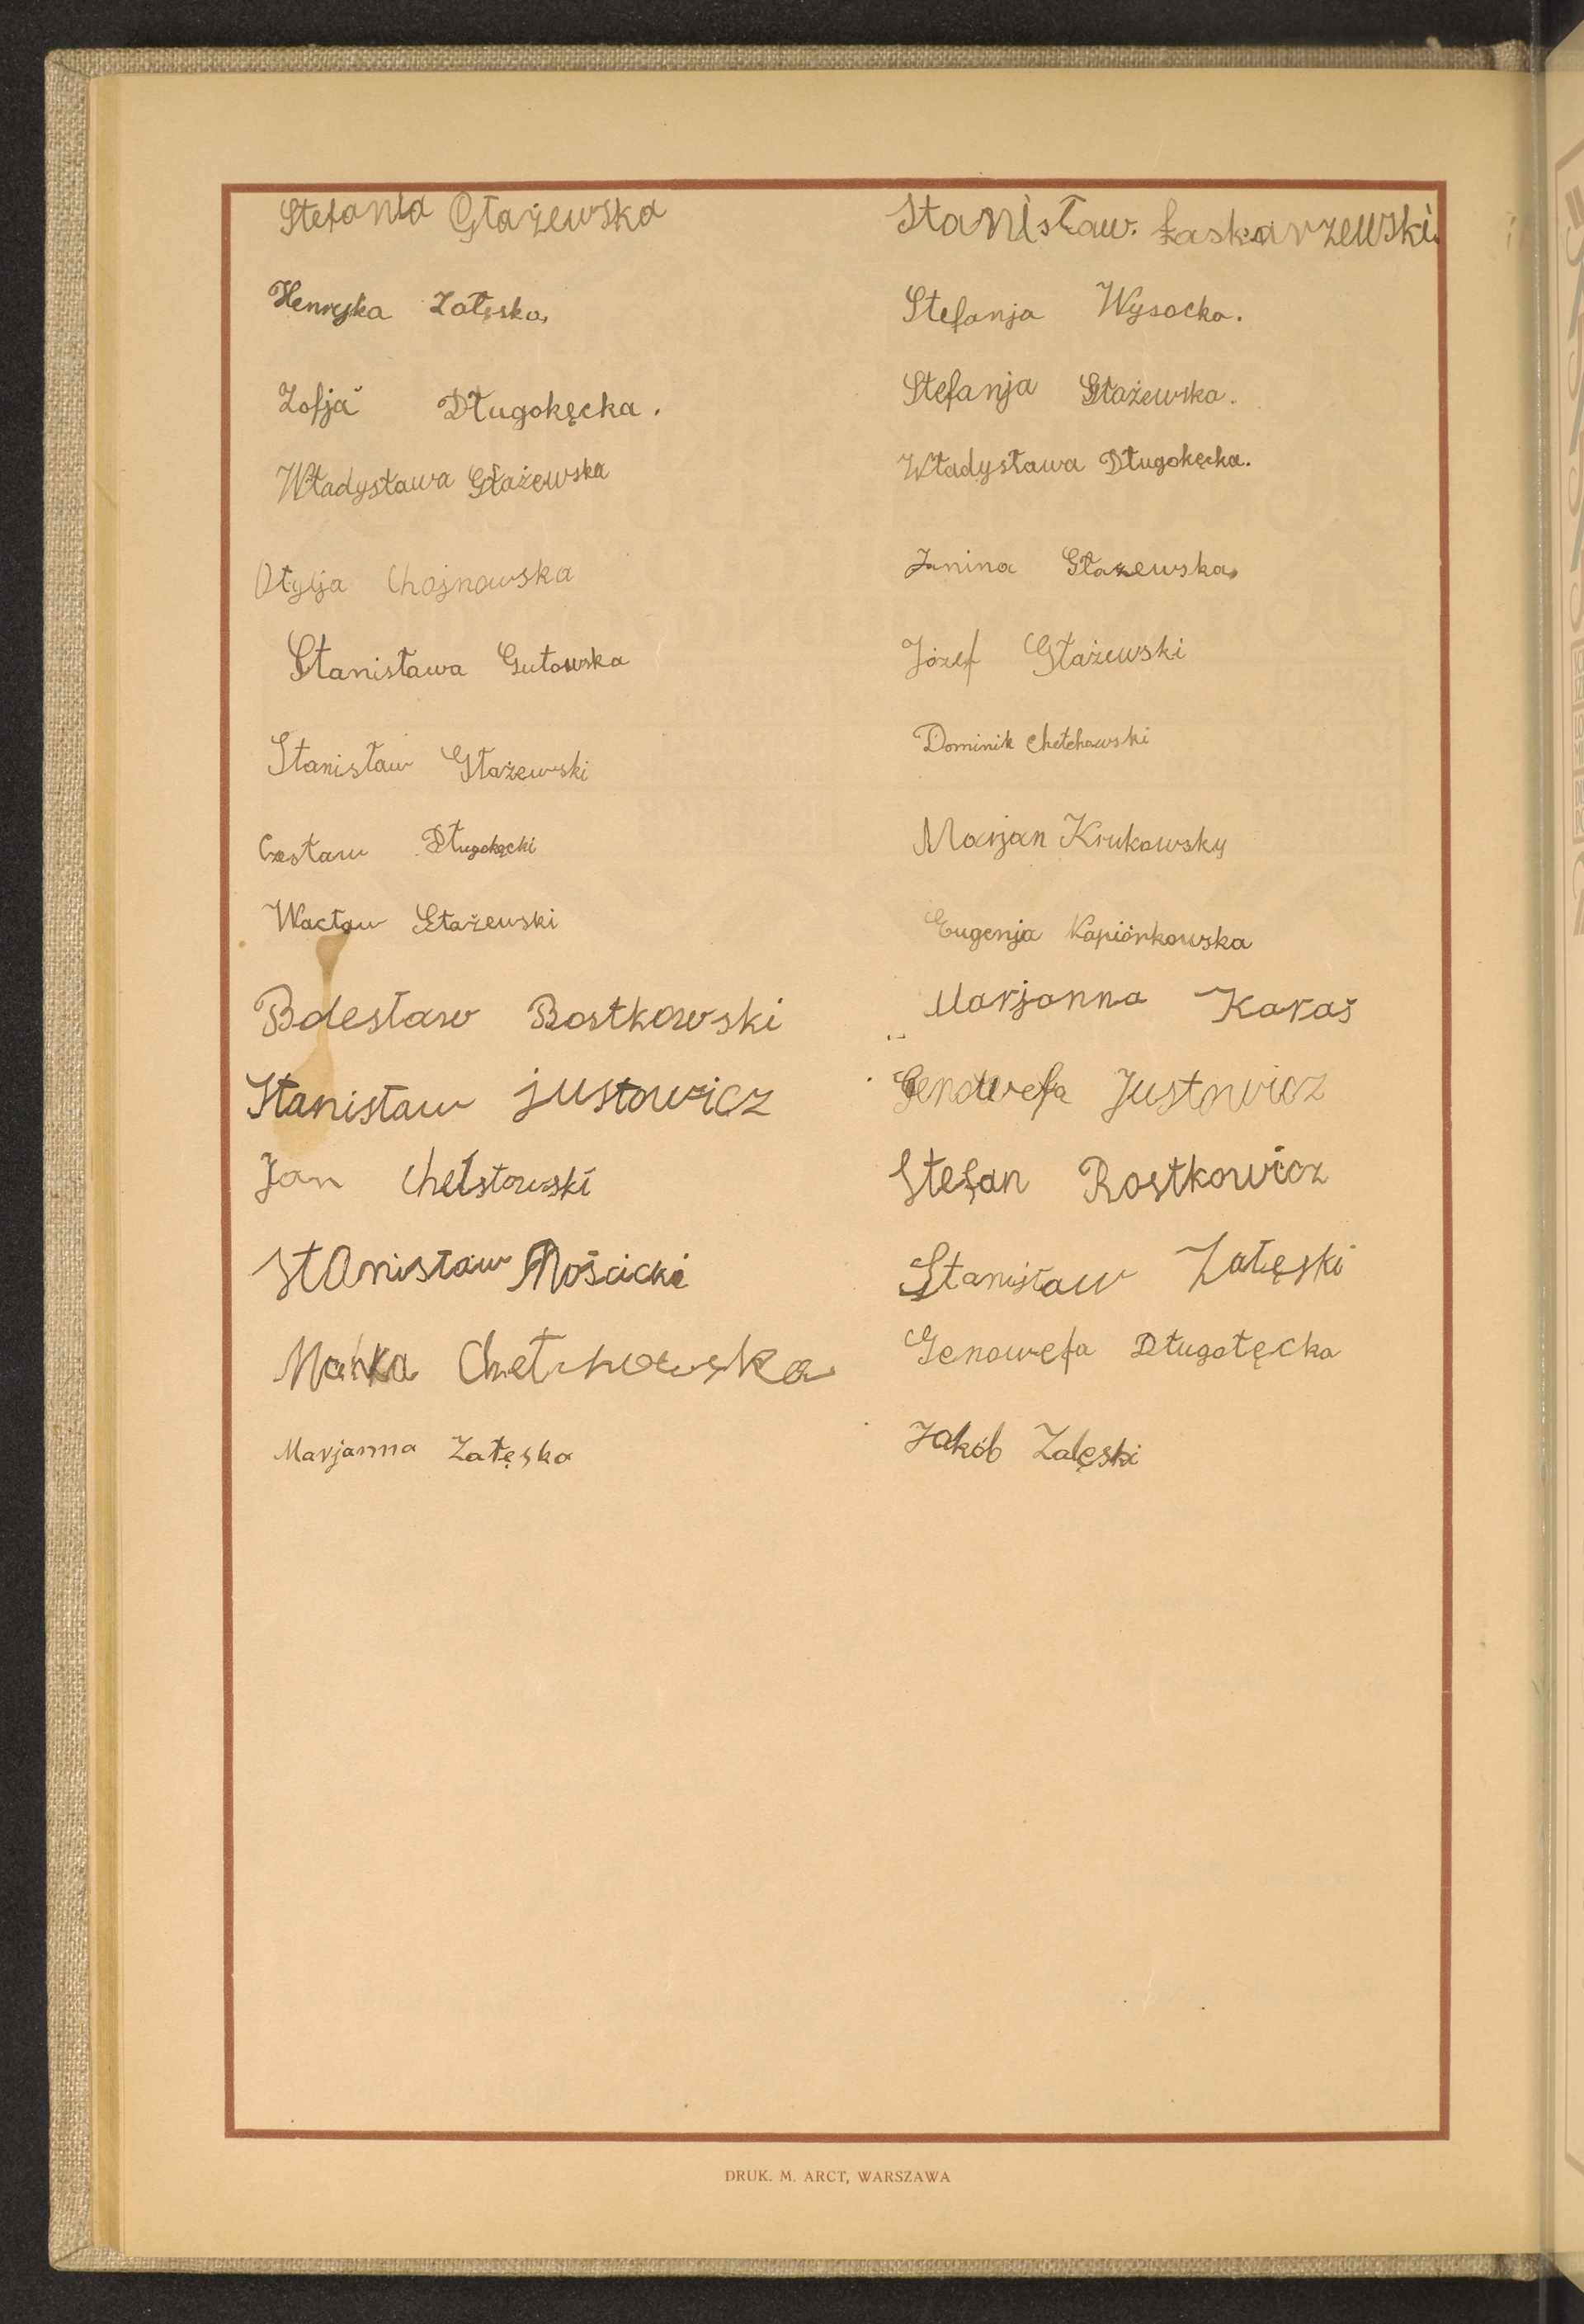 Stefania Głażewska
Henryka Załęska,
Zofja Długokęcka.
Władysława Głażewska
Otylja Chojnowska
Stanisława Gutowska
Stanisław Głażewski
Czesław Długokęcki
Wacław Głażewski
Bolesław Rostkowski
Stanisław Justowicz
Jan Chełstowski
Stanisław Mościcki
Mańka Chełchowska
Marjanna Załęska
Stanisław. Łaskarzewski.
Stefanja Wysocka.
Stefanja Głażewska.
Władysława Długokęcka.
Janina Głażewska,
Józef Głażewski
Dominik Chełchowski
Marjan Krukowsky
Eugenja Kapiórkowska
Marjanna Karaś
Genowefa Justowicz
Stefan Rostkowicz
Stanisław Załęski
Genowefa Długołęcka
Jakób Zalęski
DRUK. M. ARCT, WARSZAWA